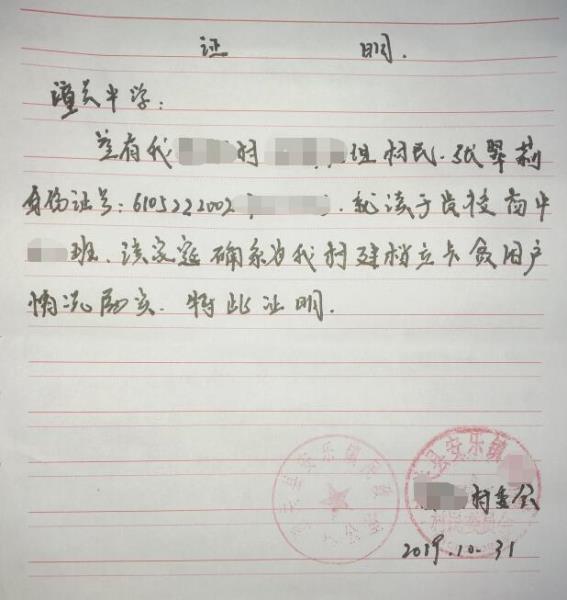 证 明.
潼关中学:
兹有我村组村民.张翠莉
身份证号:6105222002.就读于贵校高中
班.该家庭确系为我村建档立卡贫困户
情况属实.特此证明.
县安乐镇
县安乐镇
村委会
村民委员会
2019.10.31